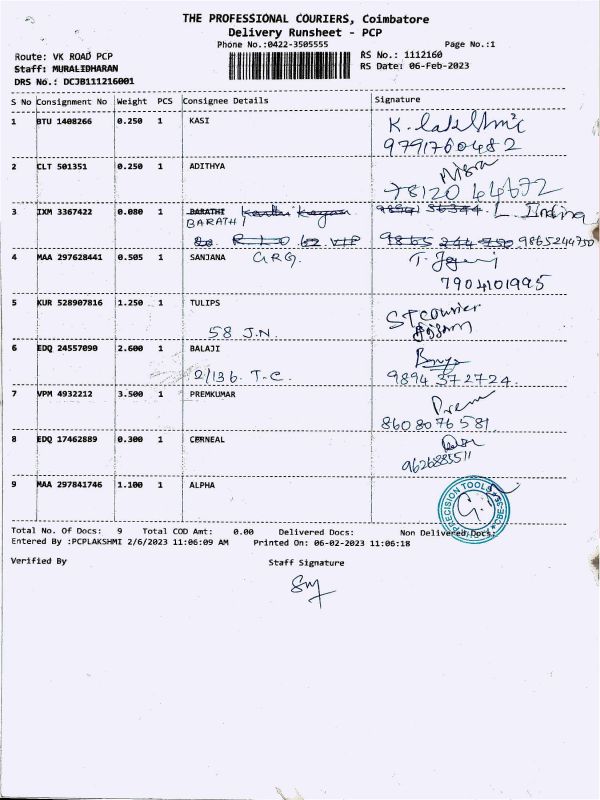 THE PROFESSIONAL COURIERS, Coimbatore
Delivery Runsheet - PCP
Phone No.:0422-3505555
Page No.:1
Route: VK ROAD PCP
RS No.: 1112160
Staff: MURALIDHARAN
RS Date: 06-Feb-2023
DRS No.: DCJB111216001
S No Consignment No Weight PCS Consignee Details Signature
1 BTU 1408266 0.250 1 KASI K. Lakshmi
9791760482
2 CLT 501351 0.250 1 ADITHYA
78120 64672
3 IXM 3367422 0.080 1 BARATHI
BARATHI
9865 244 750 9865244750
4 MAA 297628441 0.505 1 SANJANA G.R.G.
7904101995
5 KUR 528907816 1.250 1 TULIPS ST Courier
58 J.N.
6 EDQ 24557090 2.600 1 BALAJI
2/136. T.C. 9894 372724.
7 VPM 4932212 3.500 1 PREMKUMAR Prem
8608076581
8 EDQ 17462889 0.300 1 CERNEAL
9626885511
9 MAA 297841746 1.100 1 ALPHA
PRECISION TOOLS CBE
Total No. Of Docs: 9 Total COD Amt: 0.00 Delivered Docs: Non Delivered Docs:
Entered By :PCPLAKSHMI 2/6/2023 11:06:09 AM Printed On: 06-02-2023 11:06:18
Verified By Staff Signature